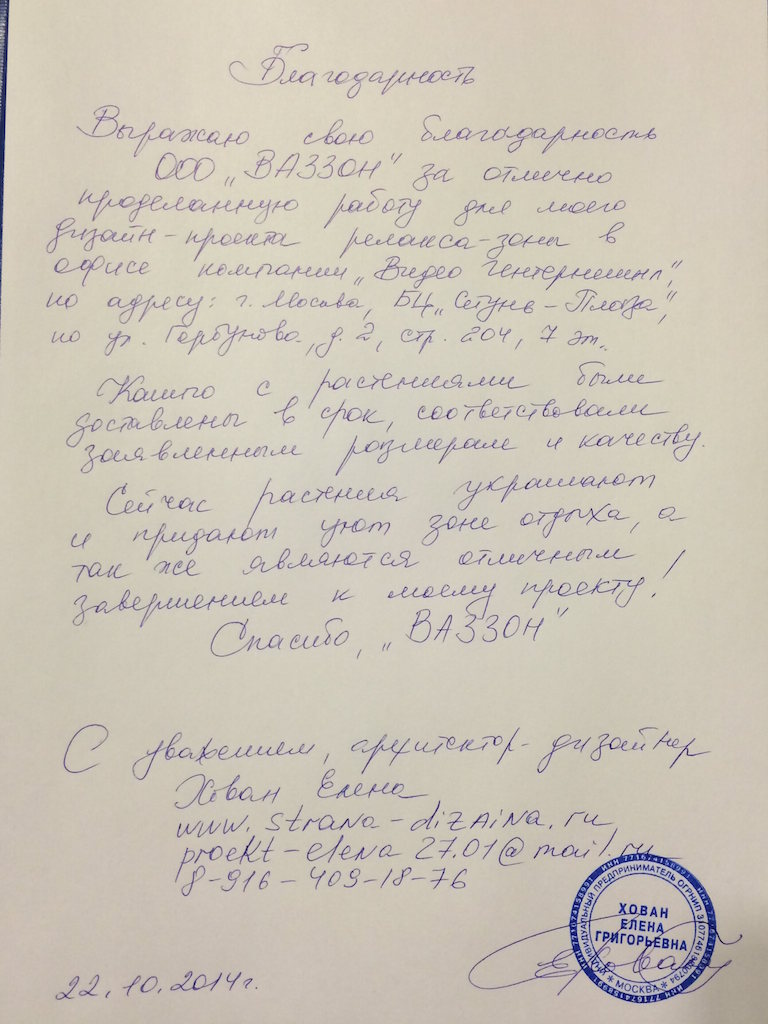 Благодарность
Выражаю свою благодарность
ООО „ВАЗЗОН" за отлично
проделанную работу для моего
дизайн-проекта релакса-зоны в
офисе компании „Видео Интернешнл",
по адресу: г. Москва, БЦ „Сетунь-Плаза",
по ул. Горбунова, д. 2, стр. 204, 7 эт.
Кашпо с растениями были
доставлены в срок, соответствовали
заявленным размерам и качеству.
Сейчас растения украшают
и придают уют зоне отдыха, а
так же являются отличным
завершением к моему проекту!
Спасибо, „ВАЗЗОН"
С уважением, архитектор-дизайнер
Хован Елена
www.strana-dizaina.ru
proekt-elena27.01@mail.ru
8-916-409-18-76
ХОВАН
ЕЛЕНА
ГРИГОРЬЕВНА
ИНДИВИДУАЛЬНЫЙ ПРЕДПРИНИМАТЕЛЬ ОГРНИП
МОСКВА
22.10.2014г.